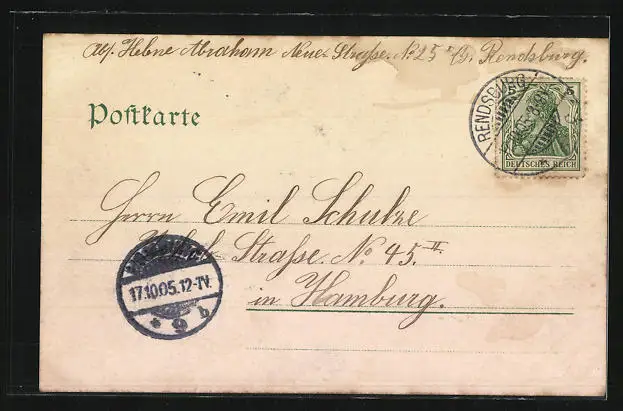 Abs. Helene Abraham Neue Straße. No 25 I/II. Rendsburg.
Postkarte
RENDSBURG
5 5
DEUTSCHES REICH
Herrn Emil Schulze
Straße. No 45. II
17.10.05.12-1V.
* 9 b
in Hamburg.